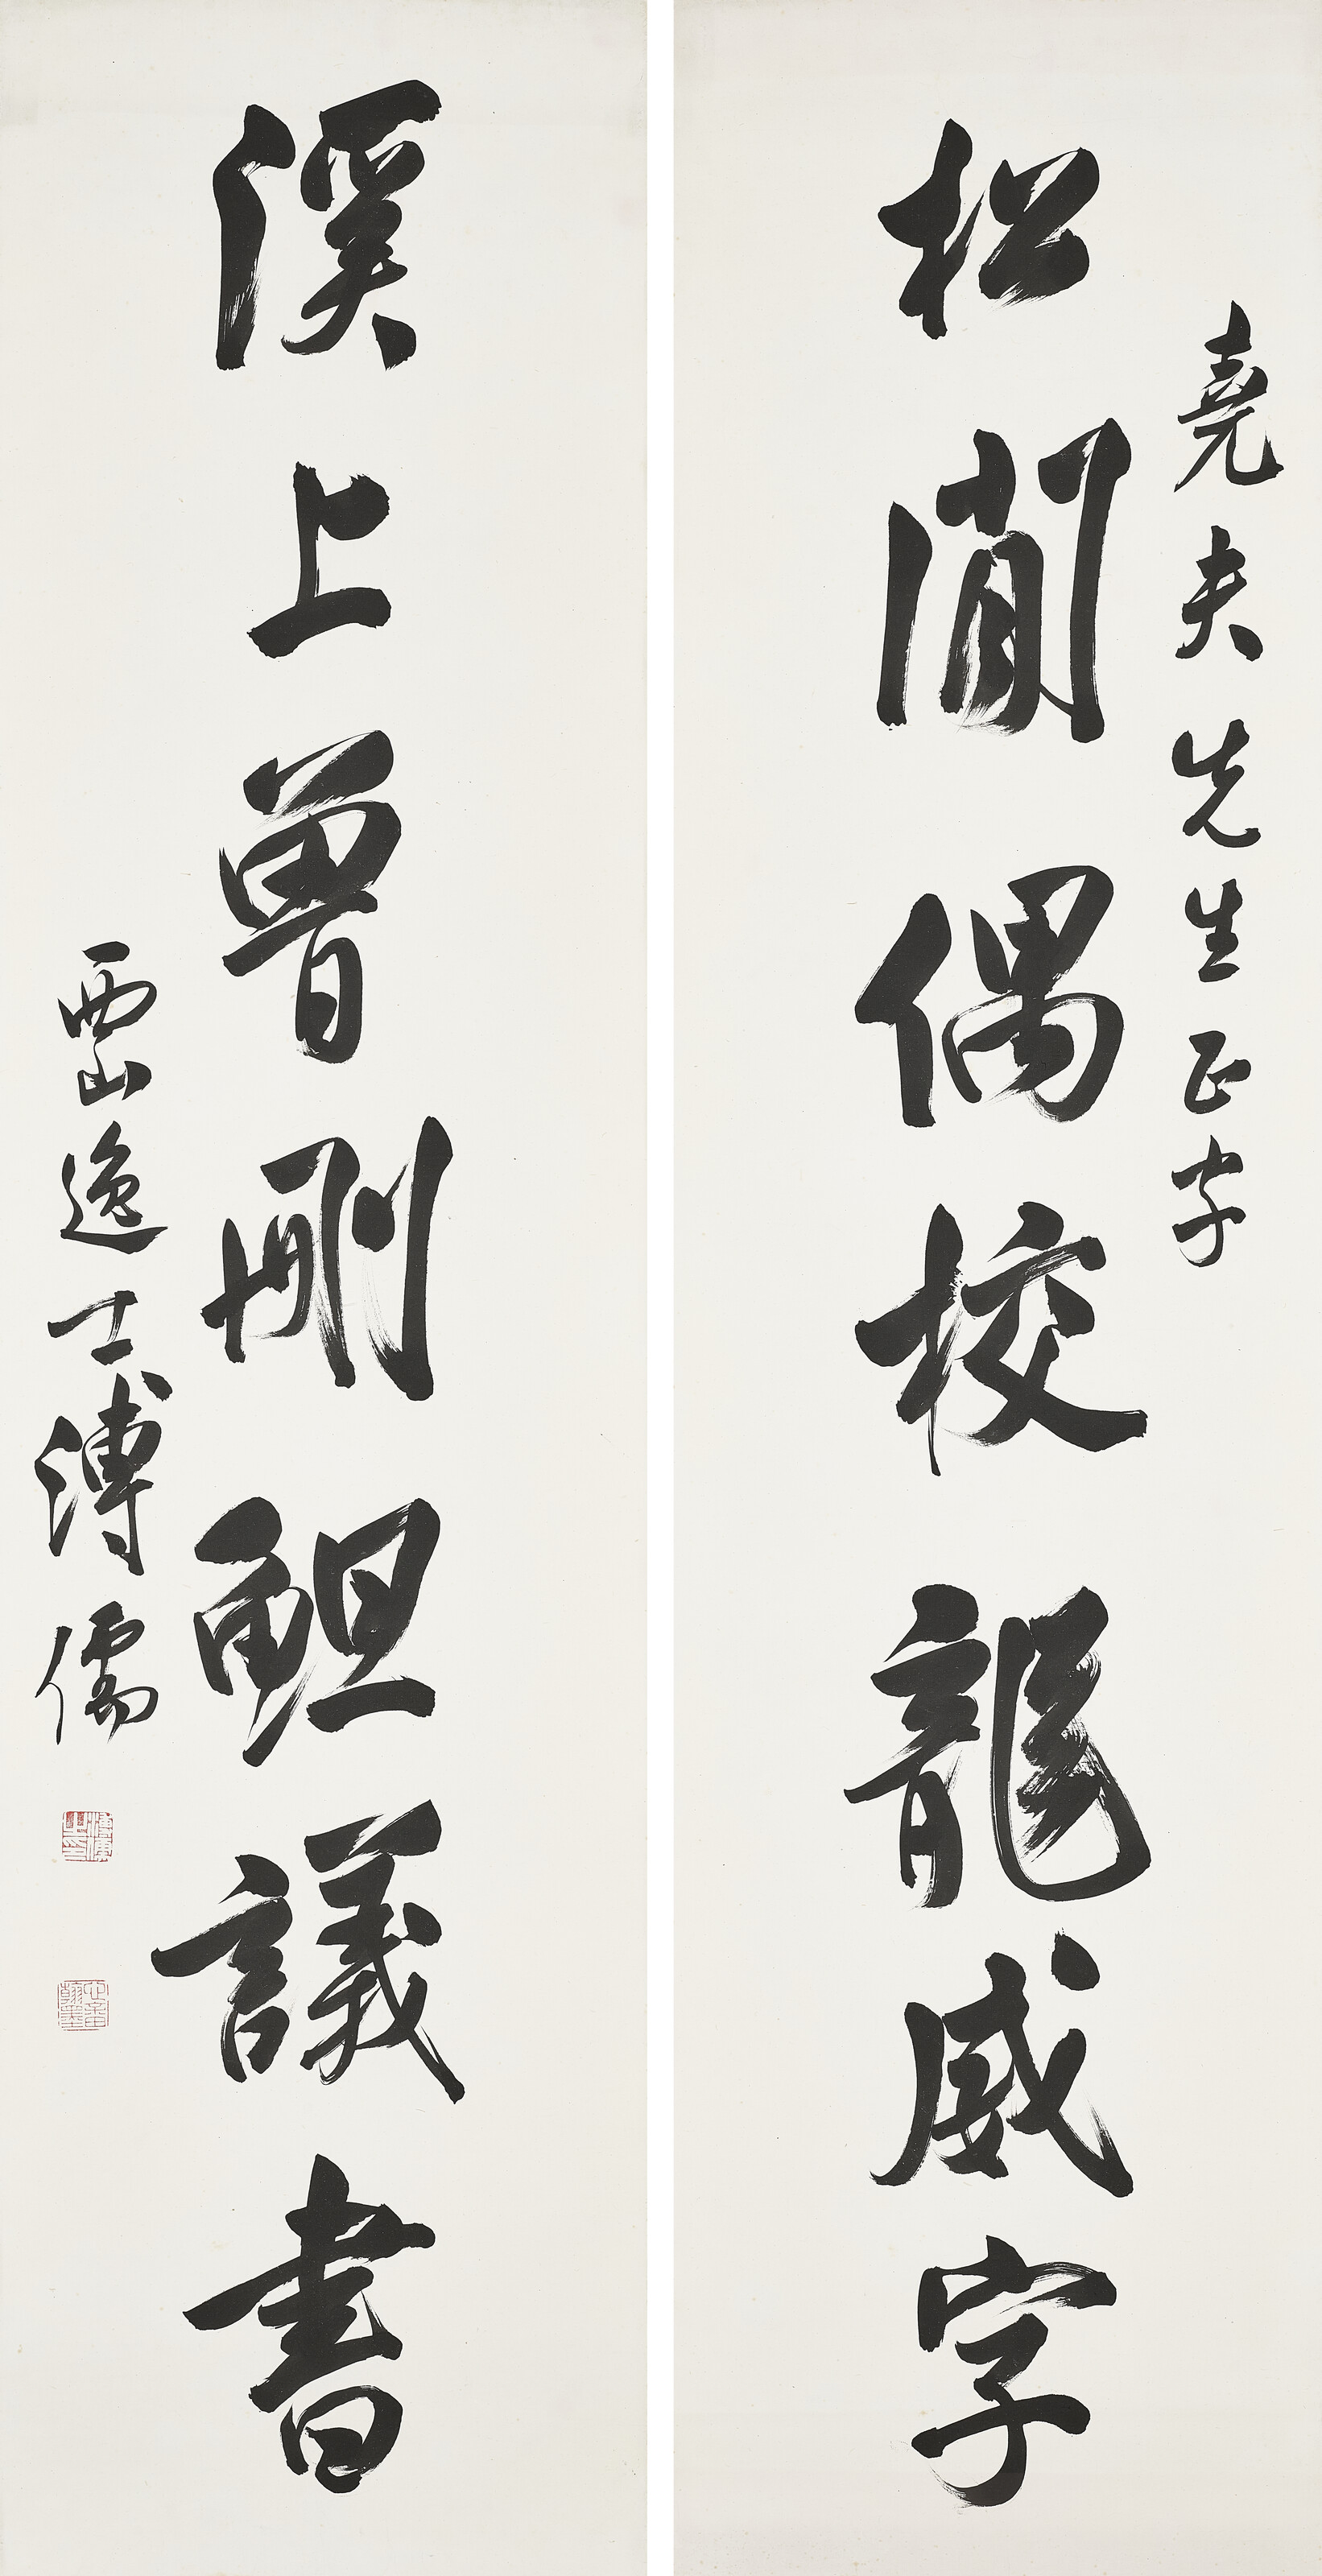 堯夫先生正字
松閒偶校龍威字
溪上曾刪䱇議書
西山逸士溥儒